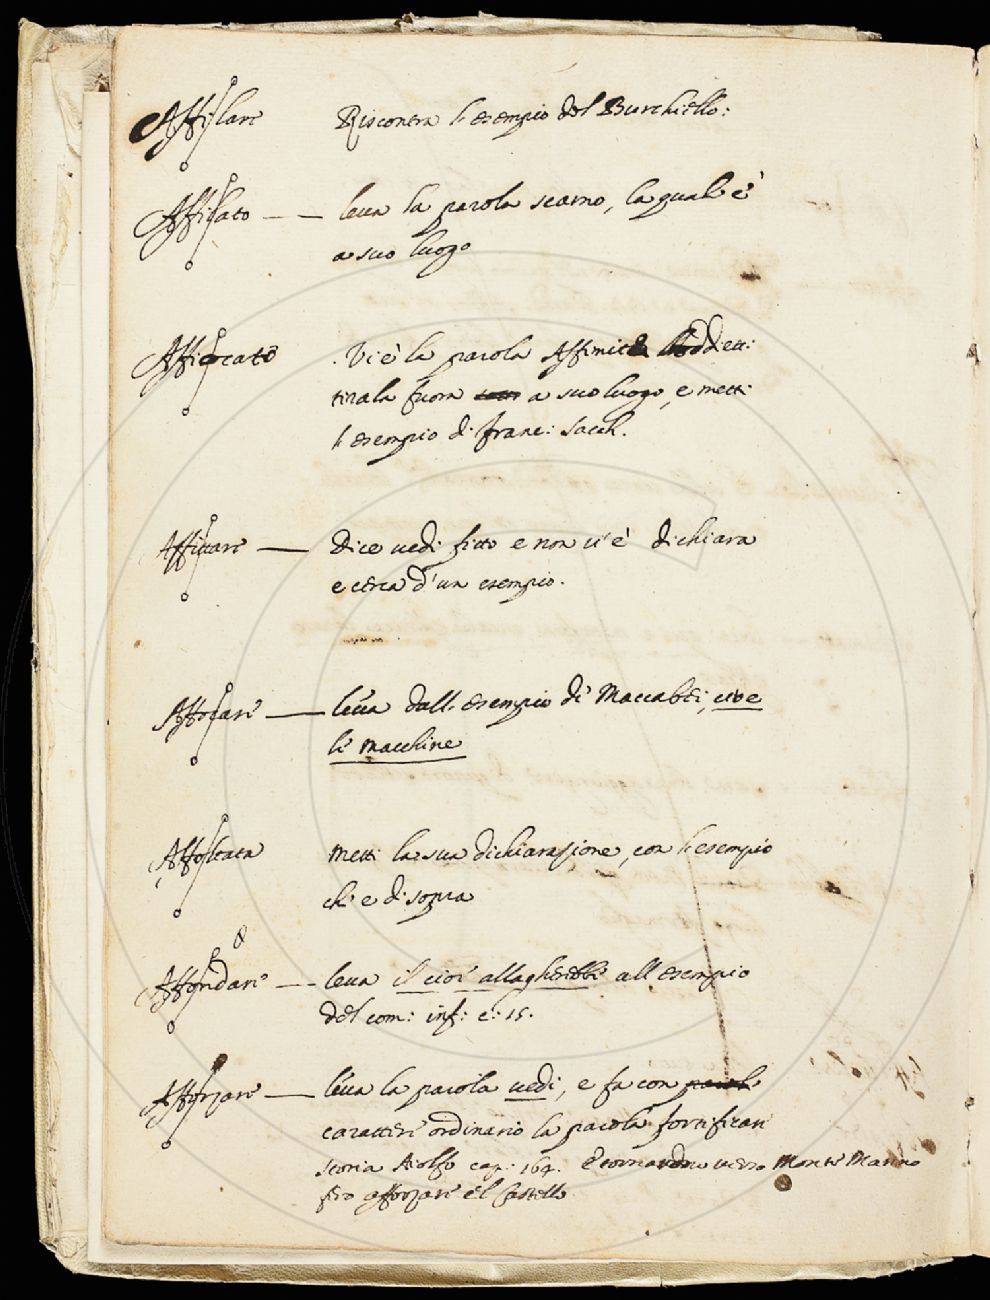 Affilare Riscontra l'esempio del Burchiello:
Affilato — leua la parola scarno, la qual è
a suo luogo
Affocato . Vi è la parola Affinità
tirala fuora a suo luogo, e metti
l'esempio di franc: Sacch.
Affittare — Dice uedi fitto e non u'è dichiara
e cerca d'un esempio.
Affocare — leua dall'esempio di Maccabei, cioe
le macchine
Affoltata metti la sua dichiarazione, con l'esempio
che è di sopra
Affondare — leua il cioè all esempio
del com: inf: c: 15.
Afforzare — leua la parola uedi, e fa con
carattere ordinario la parola fortificare
storia Aiolfo cap: 164. E tornarono uerso Monte Marino
fero afforzare el Castello